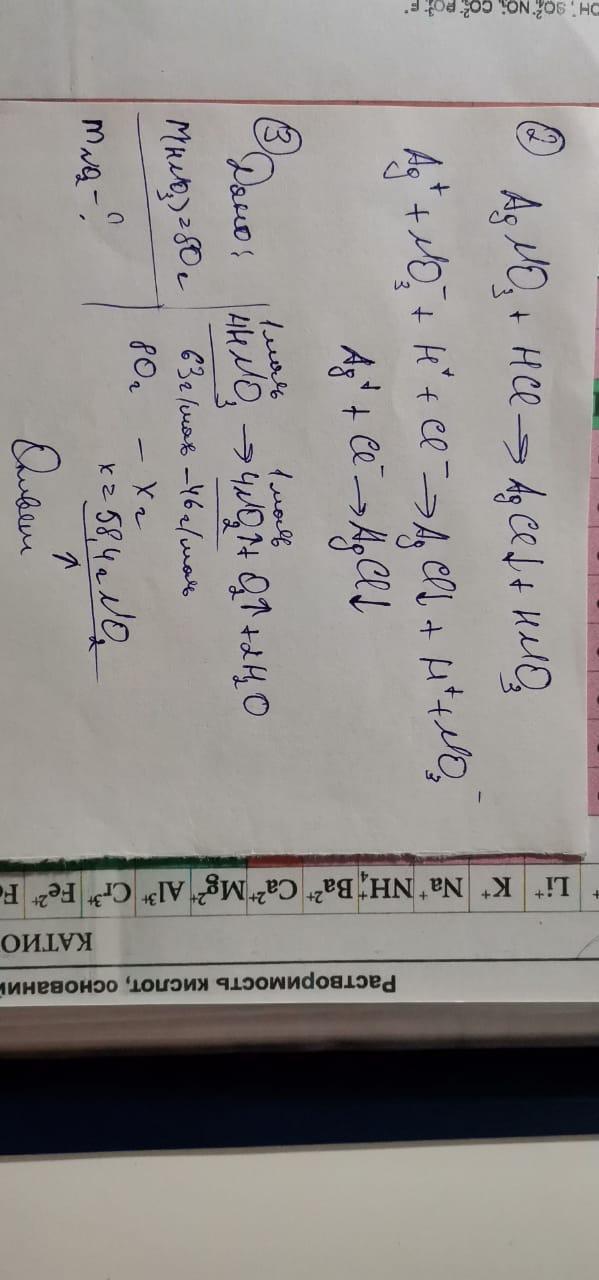 ② AgNO₃ + HCl → AgCl↓ + HNO₃
Ag⁺ + NO₃⁻ + H⁺ + Cl⁻ → AgCl↓ + H⁺ + NO₃⁻
Ag⁺ + Cl⁻ → AgCl↓
③ Дано:
m(HNO₃) = 80г
mNO₂ - ?
1 моль 1 моль
4HNO₃ → 4NO₂↑ + O₂↑ + 2H₂O
63г/моль - 46г/моль
80г - xг
x = 58,4г NO₂
↑
Ответ
Растворимость кислот, оснований
КАТИО
Li⁺ K⁺ Na⁺ NH₄⁺ Ba²⁺ Ca²⁺ Mg²⁺ Al³⁺ Cr³⁺ Fe²⁺